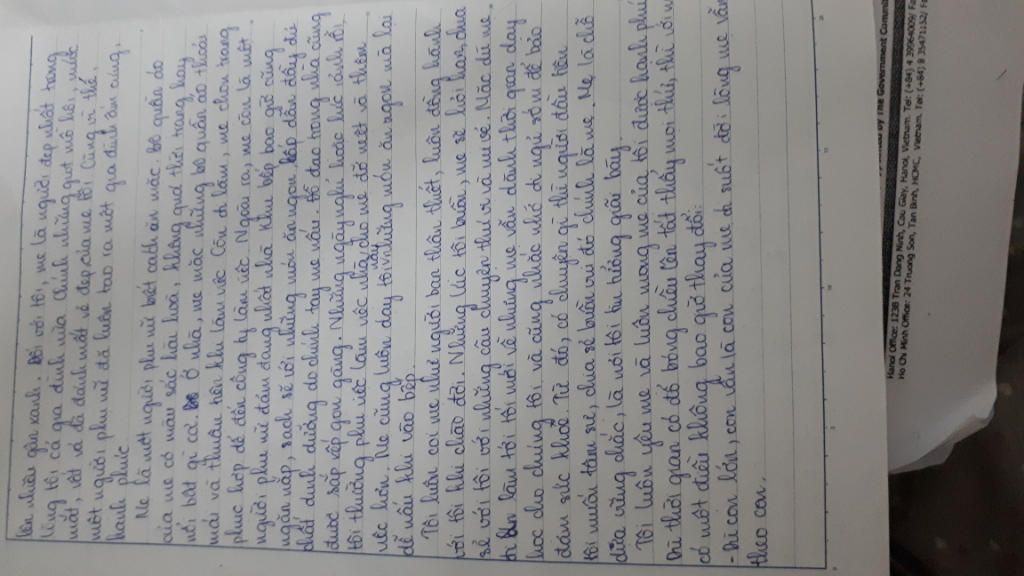 lên nhiều gân xanh. Đối với tôi, mẹ là người đẹp nhất trong
lòng tôi và cả gia đình nữa. Chính những giọt mồ hôi, nước
mắt, vất vả đã đánh mất vẻ đẹp của mẹ tôi. Cũng vì thế,
một người phụ nữ đã luôn tạo ra một gia đình ấm cúng,
hạnh phúc
Mẹ là một người phụ nữ biết cách ăn mặc. Bộ quần áo
của mẹ có màu sắc hài hoà, không quá thời trang hay
nổi bật gì cả. Ở nhà, mẹ mặc những bộ quần áo thoải
mái và thuận tiện khi làm việc. Còn đi làm, mẹ chọn trang
phục hợp để đến công ty làm việc. Ngoài ra, mẹ còn là một
người phụ nữ đảm đang nhất nhà. Khu bếp bao giờ cũng
ngăn nắp, sạch sẽ với những món ăn ngon, hấp dẫn đầy đủ
chất dinh dưỡng do chính tay mẹ nấu. Đồ đạc trong nhà cũng
được sắp xếp gọn gàng. Những ngày nghỉ hoặc lúc rảnh rỗi,
tôi thường phụ việc làm việc này cho mẹ đỡ mệt và thêm
việc hơn. Mẹ cũng luôn dạy tôi những món ăn ngon mà lại
dễ nấu khi vào bếp.
Tôi luôn coi mẹ như người bạn thân thiết, luôn đồng hành
với tôi khi chào đời. Những lúc tôi buồn, mẹ sẽ hỏi han, chia
sẻ với tôi với những câu chuyện thú vị và vui vẻ. Mặc dù mẹ
đi làm tối tối mới về nhưng mẹ vẫn dành thời gian dạy
học cho chúng tôi và căng nhắc nhở đi ngủ sớm để bảo
đảm sức khoẻ. Từ đó, có chuyện gì thì người đầu tiên
tôi muốn tâm sự, chia sẻ buồn vui đó chính là mẹ. Mẹ là chỗ
dựa vững chắc, là nơi tôi tin tưởng giãi bày.
Tôi luôn yêu mẹ và luôn mong mẹ của tôi được hạnh phúc
Dù thời gian có đổ bóng chiều lên tất thảy mọi thứ, thì vẫn
có một điều không bao giờ thay đổi:
- Dù con lớn, con vẫn là con của mẹ đi suốt đời lòng mẹ vẫn
theo con.
by The Government Commi
Hanoi Office: 123B Tran Dang Ninh, Cau Giay, Hanoi, Vietnam. Tel: (+84) 4
Ho Chi Minh Office: 24 Truong Son, Tan Binh, HCMC, Vietnam. Tel: (+84) 8